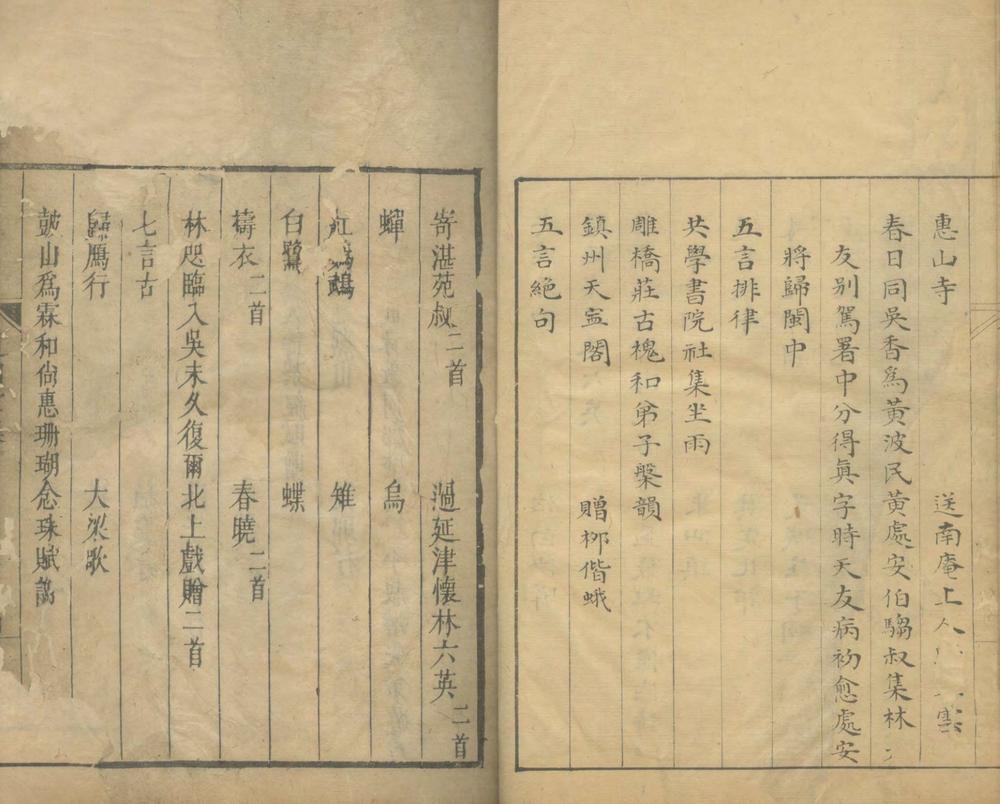 惠山寺 送南庵上人
春日同吳香為黃波民黃處安伯騶叔集林
友別駕署中分得真字時天友病初愈處安
將歸閩中
五言排律
共學書院社集坐雨
雕橋莊古槐和弟子槃韻
鎮州天寧閣 贈柳偕蛾
五言絕句
寄湛苑叔二首 過延津懷林六英二首
蟬 烏
雉
白鷺 蝶
擣衣二首 春曉二首
林咫臨入吳未久復爾北上戲贈二首
七言古
歸鴈行 大梁歌
鼓山為霖和尚惠珊瑚念珠賦謝